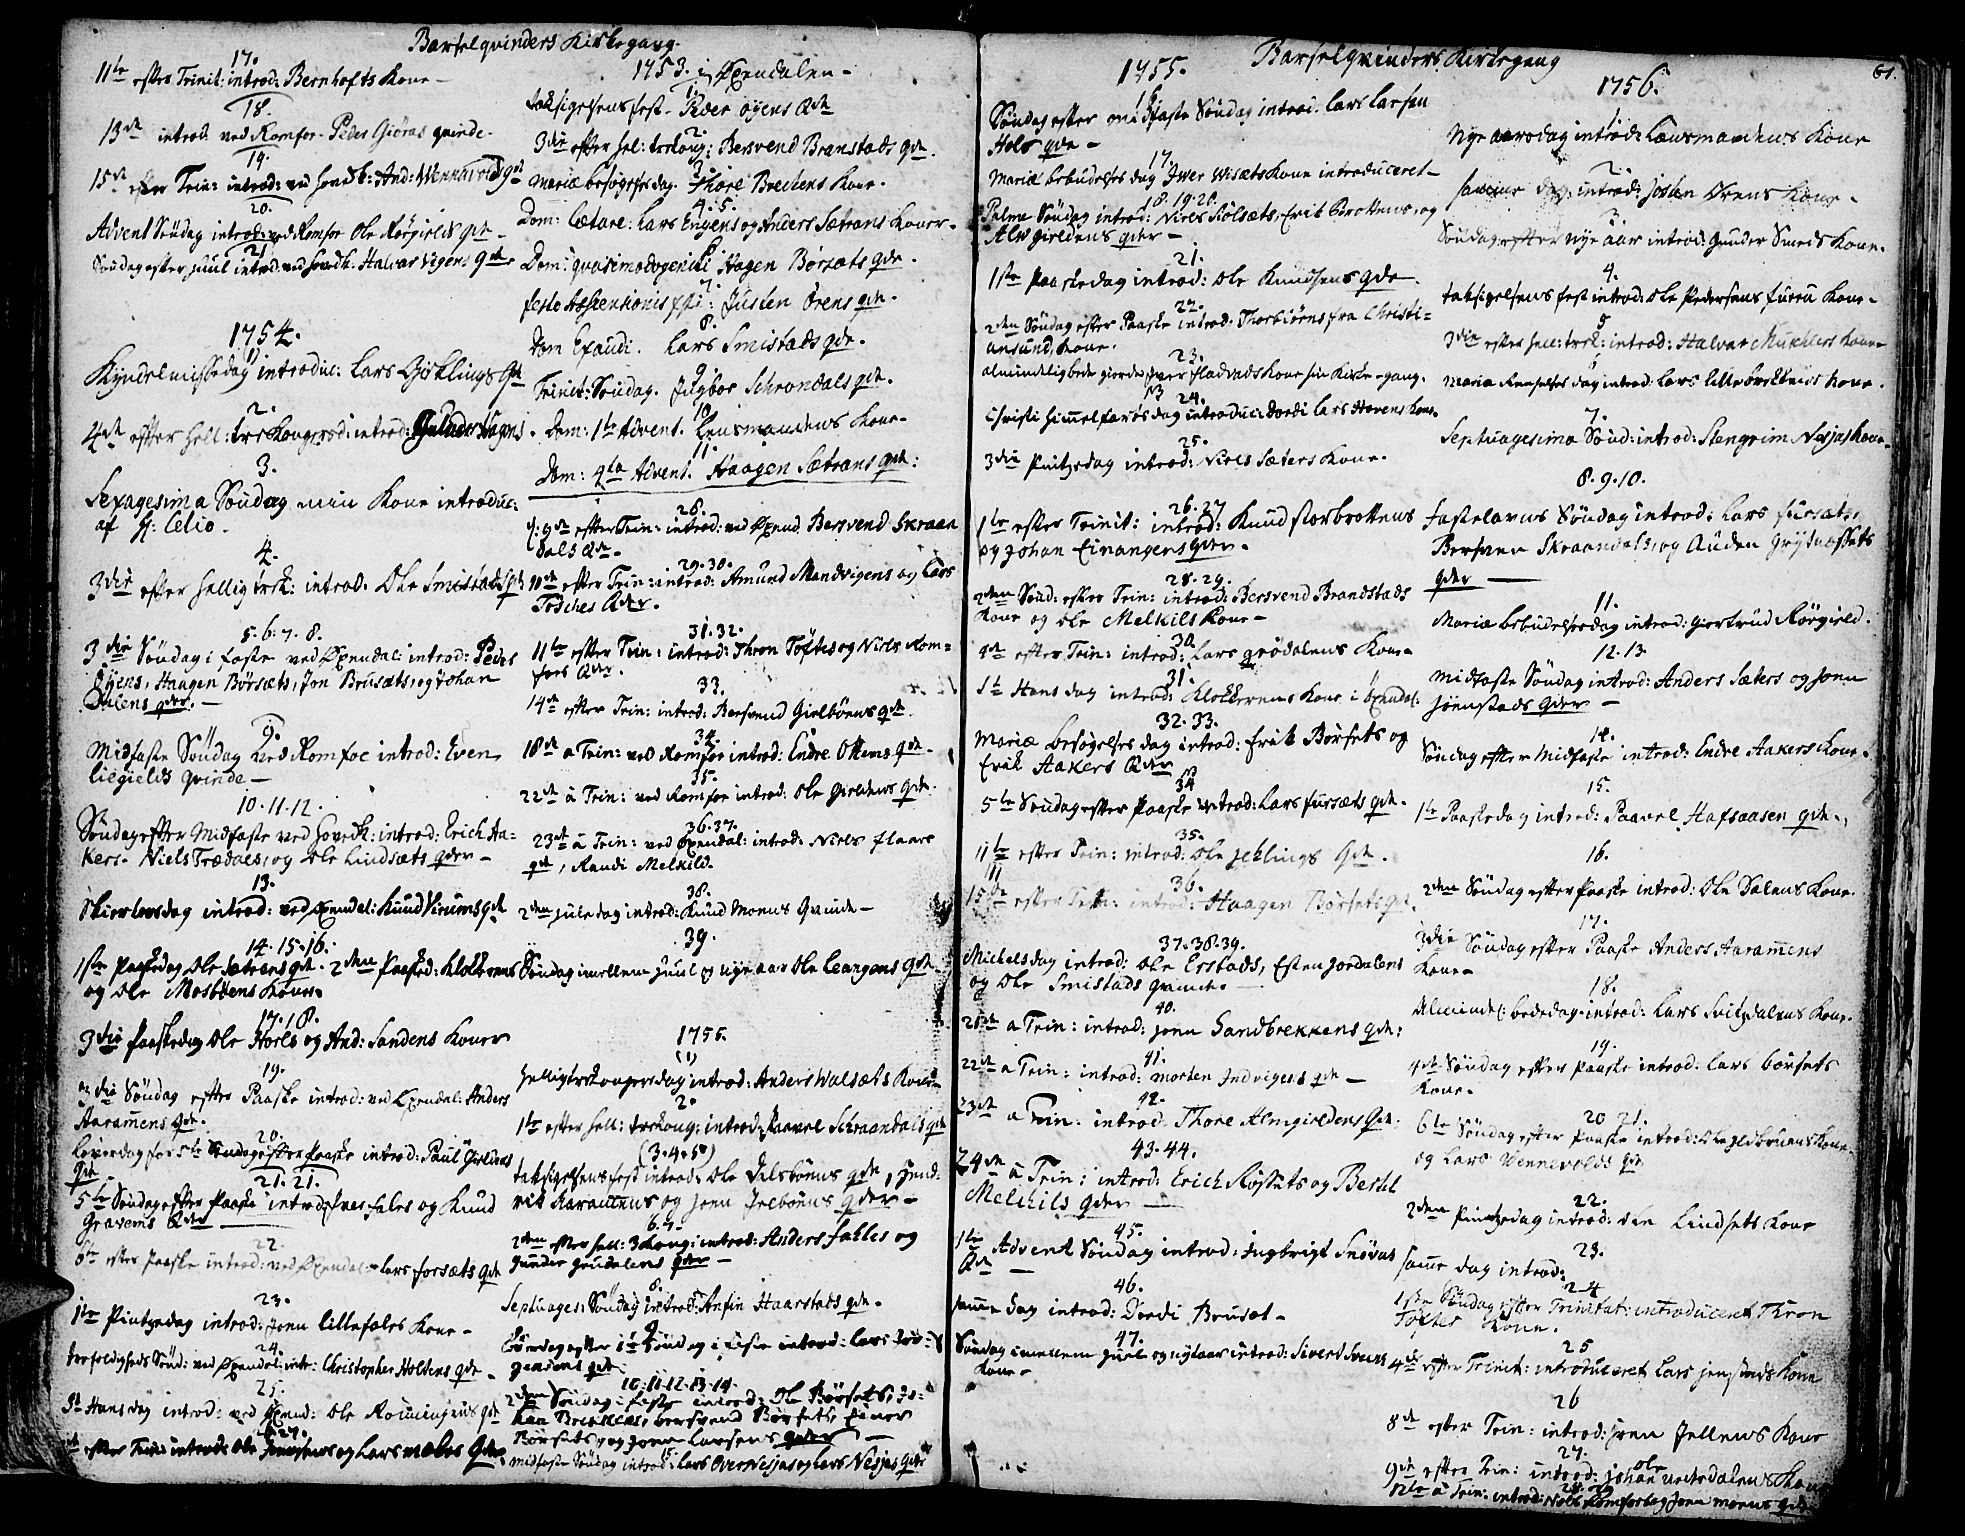 Barselqvinders Kirkegang.
17.
11te efter Trinit: introd: Bernhofts Kone
18.
13de introd: ved Romfor. Peder Giöras qvinde.
19.
15de efter Trin: introd: ved Hovedk: And: Wennevolds qde
20.
Advent Söndag introd: ved Romfor Ole Rörgields qde
21
Söndag efter Juul introd: ved Hovedk. Halvar Vigens qde
1754.
1
Kyndelmissedag introduc: Lars Giöklings Qde
2.
4de efter hell: trekong: introd: Gunder Vagens
3.
Sexagesima Söndag min Kone introduc:
af H: Celio.
4.
3die efter hellig trek: introd. Ole Smistads qde
5. 6. 7. 8.
3die Söndag i faste ved Öxendal: introd: Peder
Öyens, Haagen Börsæts, Jon Brusæts, og Johan
Dalens qder. —
9.
Midfaste Söndag ved Romfoe introd: Even
Liegields qvinde —
10. 11. 12.
Söndag efter Midfaste ved Hovedk: introd: Erich Aa-
kers. Niels Trædals, og Ole Lindsæts qder —
13.
Skiertorsdag introd: ved Öxendal: Knud Virums qde
14. 15. 16.
1ste Paaskedag Ole Sætrens qde. 2den Paasked: Klokkerens
og Ole Mosböens Koner.
17. 18.
3die Paaskedag Ole Horls og And: Sandens Koner
19.
3die Söndag efter Paaske introd: ved Öxendal: Anders
Aaramens qde.
20.
Löverdag for 5te Söndag efter Paaske introd: Paul Gieldnes
Qde
21. 21.
5te Söndag efter Paaske introd: Iver Fales og Knud
Gravems Qder
22.
6te efter Paaske introd: ved Öxendal: Lars Forsæts qde
23.
1te Pintzedag introd: Jonn Lillefales Kone —
24.
trefoldigheds Sönd: ved Öxendal: intr: Christopher Holtens qde —
25.
St Hans dag introd: ved Öxend: Ole Romingens qde
26. 27.
efter Trin: introd: Ole Jensens og Lars Mæles Qder
1753. i Öxendalen —
1.
taksigelsens fest. Peder Öyens Qde
2.
3die efter hel: trekong: Bersvend Branstads qde.
3.
Mariæ besögelses dag. Thore Brechens Kone.
4. 5.
Dom: Lætare: Lars Engens og Anders Sætrans Koner.
6
Dom: quasimodogeniti Hagen Börsæts qde.
7.
festo Ascentionis xsti: Justen Örens qde.
8.
Dom Exaudi. Lars Smistads qde.
9
Trinit: Söndag. Ingbor Schrondals qde.
10
Dom: 1te Advent. Lensmandens Kone —
11.
Dom: 4ta Advent. Haagen Sætrans qde:
28.
9de efter Trin: introd: ved Öxend Bersvend Skraan
dals Qde —
29. 30.
10de efter Trin: introd: Amund Mandvigens og Lars
Tösches Qder.
31. 32.
11te efter Trin: introd: Thron Töftes og Niels Rom-
fors Qder.
33.
14de efter Trin: introd: Bersvend Gielbönes qde.
34.
18de a Trin: ved Romfor introd: Endre Ottems qde —
35.
22de a Trin: ved Romfor introd: Ole Gieldnes qde.
36. 37.
23de a Trin: ved Öxendal: introd: Niels Flaars
qde, Randi Melkild.
38.
2den Juledag introd: Knud Moens Qvinde —
39.
Söndag imellem Juul og nye aar Ole Leangens qde.
1755.
(1)
helligtrekongersdag introd: Anders Walsæts Kone
2.
1te efter hell: trekong: introd: Paavel Schraandals qde
(3. 4. 5)
taksigelsens fest introd: Ole Dalsböens qde, Hend-
rik Aaramens og Jonn Jelbönes Qder —
6. 7
2den efter hell: 3 kong: introd: Anders Falles og
Gunder Grudalens qder —
8.
Septuages: Söndag introd: Anfin Haarstads qde.
9
Löverdag efter 1te Söndag i faste introd: Lars Jör-
gensens qde
10. 11. 12. 13. 14.
2den Söndag i faste introd: Ole Börsets, Jo-
han Brekkens, Bersvend Börsets, Einer
Börsets og Jonn Larsens qder —
15.
Midfaste Söndag introd: Lars OverNesjas og Lars Nesjas qder
Barselqvinders Kirkegang
61.
1755.
16
Söndag efter midfaste Söndag introd: Lars Larsen
Hols qde —
17.
Mariæ bebudelses dag Iwer Wisæts Kone introduceret —
18. 19. 20.
Palme Söndag introd: Niels Stölsæts, Erik Brottens, og
Alvgieldens qder —
21.
1ste Paaskedag introd: Ole Knudsens qde.
22.
2den Söndag efter Paaske introd: Thorbiörns fra Christi-
ansund, Kone.
23.
almindelig bededag giorde Iver Fladvads Kone sin Kirke-gang.
24.
Christi Himmelfarts dag introduc: Dordi Lars Hovens Kone.
25.
3die Pintzedag introd: Niels Sæters Kone.
26. 27
1te efter Trinit: introd: Knud Storbrottens
og Johan Einangens qder.
28. 29.
2den Sönd: efter Trin: introd: Bersvend Brandstads
Kone og Ole Melkils Kone —
30.
4de efter Trin: introd: Lars Grödalens Kone
31.
St Hans dag introd: Klokkerens Kone i Öxendal:
32. 33.
Mariæ besögelses dag introd: Erik Börsets og
Erik Aakers Qder
34
5te Söndag efter Paaske introd: Lars Fursæts qde.
35.
11te efter Trin: introd: Ole Jeklings Qde.
36.
15de efter Trin: introd: Haagen Börsets qde.
37. 38. 39.
Michelsdag introd: Ole Erstads, Esten Jordalens
og Ole Smistads qvinde.
40.
21de a Trin: introd: Jonn Sandbrekkens qde:
41.
22de a Trin: introd: Morten Indvigens qde —
42.
23de a Trin: introd. Thore Almgieldens Qde.
43. 44.
24de a Trin: introd: Erich Rössets og Bertil
Melkils qder —
45.
1te Advent Söndag introd: Ingbrigt Snövas
Qde —
46.
samme dag introd: Dordi Bruset —
47.
Söndag imellem Juel og nytaar introd: Sivert Svens
Kone —
1756.
1
Nye aarsdag introd: Lænsmandens Kone
2.
samme dag, introd: Josten Örens Kone —
3.
Söndag efter nye aar introd: Gunder Smeds Kone.
4.
taksigelsens fest introd: Ole Pedersens Furru Kone —
5
3die efter hell: trek: introd: Halvar Mukhlers Kone
6
Mariæ Renselses dag introd: Lars Lillebrekkens Kone.
7.
Septuagesima Sönd: introd: Stengrim Nesjas Kone.
8. 9. 10.
Fastelavns Söndag introd: Lars Fursæts,
Bersven Skraandals, og Auden Grydnessets
qder —
11.
Mariæ bebudelsesdag introd: Giertrud Rörgield.
12. 13.
Midfaste Söndag introd: Anders Sæters og Jonn
Jöenstads qder —
14.
Söndag efter Midfaste introd: Endre Aakers Kone.
15.
1te Paaskedag introd: Paavel Hafsaasen qde.
16.
2den Söndag efter Paaske introd: Ole Dalens Kone.
17.
3die Söndag efter Paaske Anders Aaramens
Kone —
18.
Alminde: bededag introd: Lars Svitzdalens Kone.
19.
4de Söndag efter Paaske introd: Lars Börsets
Kone.
20 21.
6te Söndag efter Paaske introd: Ole Jelbönes Kone
og Lars Wennevolds qde
22.
2den Pintzedag introd: Ole Lindsets Kone
23.
samme dag introd:
24
1ste Söndag efter Trinitat: introduceret Thron
Toftes Kone.
25
4de efter Trinit: introduceret Lars Jenstads Kone
26
8de efter Trin: introd: Jonn Jellens Kone
27.
9de efter Trin: introd: Johan Uttedalens Kone
Ole
28. 29
12te a Trin: introd: Niels Romfors og Jonn Moens qder